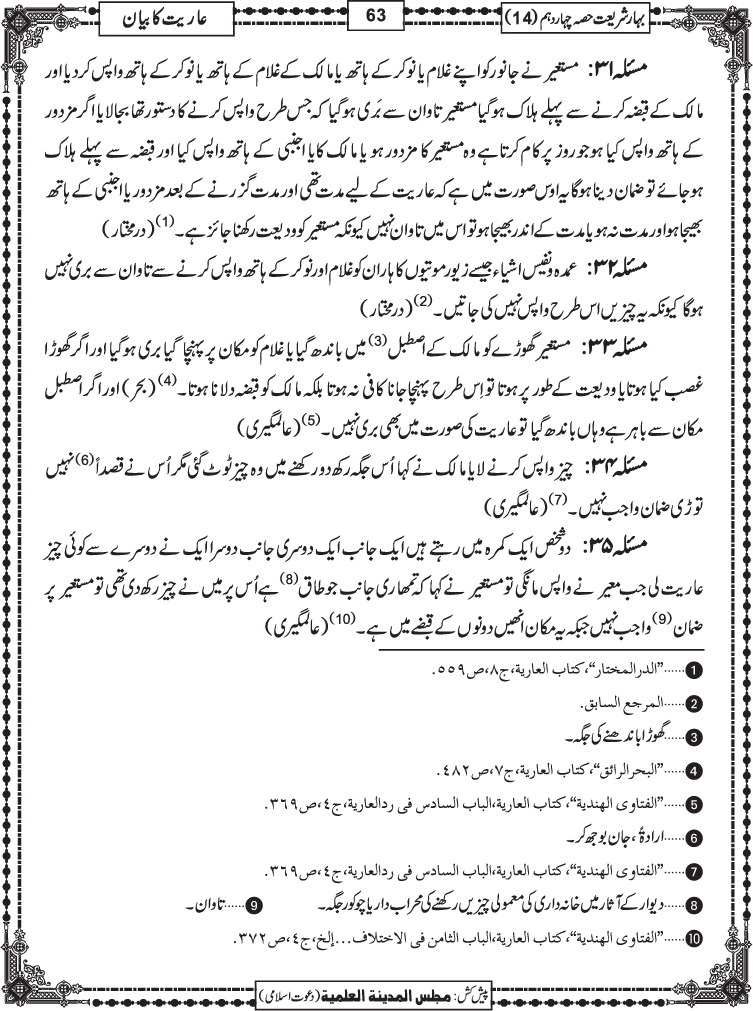 بہارِ شریعت حصہ چہاردہم (14)
63
عاریت کا بیان
مسئلہ ۳۱: مستعیر نے جانور کو اپنے غلام یا نوکر کے ہاتھ یا مالک کے غلام کے ہاتھ یا نوکر کے ہاتھ واپس کر دیا اور
مالک کے قبضہ کرنے سے پہلے ہلاک ہوگیا مستعیر تاوان سے بَری ہوگیا کہ جس طرح واپس کرنے کا دستور تھا بجالایا اگر مزدور
کے ہاتھ واپس کیا ہو جو روز پر کام کرتا ہے وہ مستعیر کا مزدور ہو یا مالک کا یا اجنبی کے ہاتھ واپس کیا اور قبضہ سے پہلے ہلاک
ہو جائے تو ضمان دینا ہوگا یہ اوس صورت میں ہے کہ عاریت کے لیے مدت تھی اور مدت گزرنے کے بعد مزدور یا اجنبی کے ہاتھ
بھیجا ہو اور مدت نہ ہو یا مدت کے اندر بھیجا ہو تو اس میں تاوان نہیں کیونکہ مستعیر کو ودیعت رکھنا جائز ہے۔(1) (درمختار)
مسئلہ ۳۲: عمدہ و نفیس اشیاء جیسے زیور موتیوں کا ہار ان کو غلام اور نوکر کے ہاتھ واپس کرنے سے تاوان سے بری نہیں
ہوگا کیونکہ یہ چیزیں اس طرح واپس نہیں کی جاتیں۔(2) (درمختار)
مسئلہ ۳۳: مستعیر گھوڑے کو مالک کے اصطبل(3) میں باندھ گیا یا غلام کو مکان پر پہنچا گیا بری ہوگیا اور اگر گھوڑا
غصب کیا ہوتا یا ودیعت کے طور پر ہوتا تو اِس طرح پہنچا جانا کافی نہ ہوتا بلکہ مالک کو قبضہ دلانا ہوتا۔(4) (بحر) اور اگر اصطبل
مکان سے باہر ہے وہاں باندھ گیا تو عاریت کی صورت میں بھی بری نہیں۔(5) (عالمگیری)
مسئلہ ۳۴: چیز واپس کرنے لایا مالک نے کہا اُس جگہ رکھ دو رکھنے میں وہ چیز ٹوٹ گئی مگر اُس نے قصداً(6) نہیں
توڑی ضمان واجب نہیں۔(7) (عالمگیری)
مسئلہ ۳۵: دو شخص ایک کمرہ میں رہتے ہیں ایک جانب ایک دوسری جانب دوسرا ایک نے دوسرے سے کوئی چیز
عاریت لی جب معیر نے واپس مانگی تو مستعیر نے کہا کہ تمھاری جانب جو طاق(8) ہے اُس پر میں نے چیز رکھ دی تھی تو مستعیر پر
ضمان(9) واجب نہیں جبکہ یہ مکان انھیں دونوں کے قبضے میں ہے۔(10) (عالمگیری)
1 ......"الدرالمختار"،کتاب العاریة،ج۸،ص۵۵۹.
2 ......المرجع السابق.
3 ......گھوڑا باندھنے کی جگہ۔
4 ......"البحرالرائق"،کتاب العاریة،ج۷،ص۴۸۲.
5 ......"الفتاوی الهندیة"،کتاب العاریة،الباب السادس فی ردالعاریة،ج٤،ص۳٦۹.
6 ......ارادۃً ، جان بوجھ کر۔
7 ......"الفتاوی الهندیة"،کتاب العاریة،الباب السادس فی ردالعاریة،ج٤،ص۳٦۹.
8 ......دیوار کے آثار میں خانہ داری کی معمولی چیزیں رکھنے کی محراب دار یا چوکور جگہ۔ 9 ......تاوان۔
10 ......"الفتاوی الهندیة"،کتاب العاریة،الباب الثامن فی الاختلاف...إلخ،ج٤،ص۳۷۲.
پیش کش: مجلس المدینة العلمیة (دعوت اسلامی)